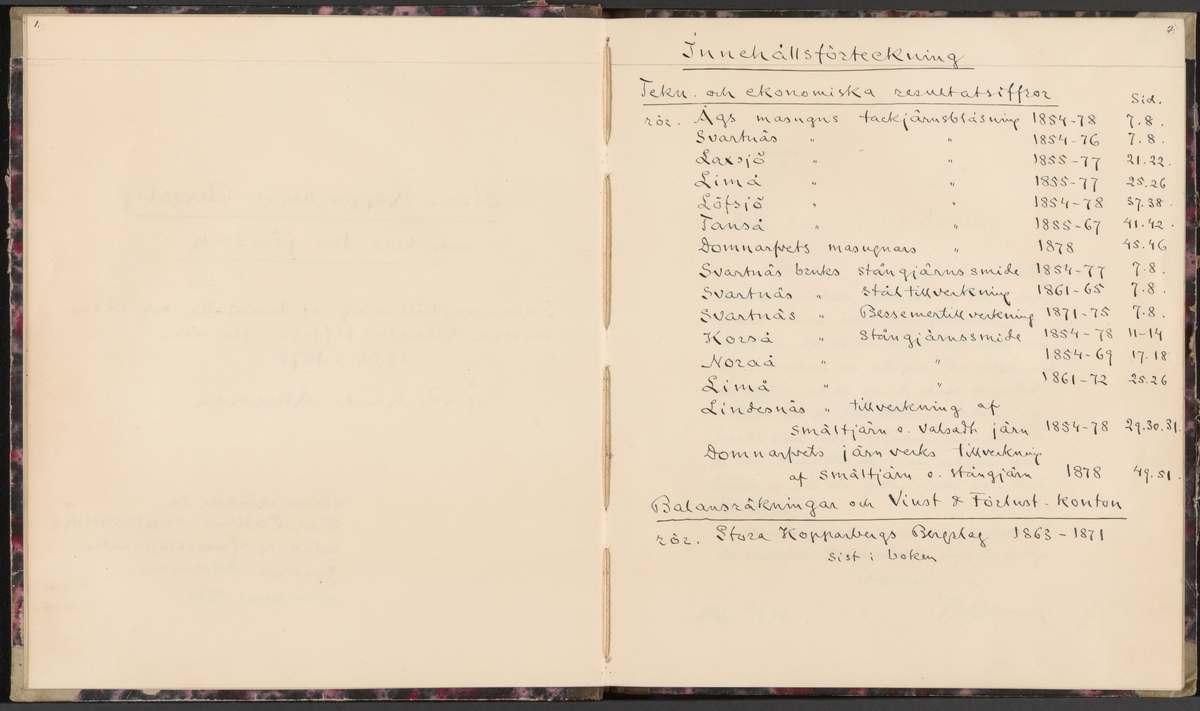 1.
2.
Innehållsförteckning
Tekn. och ekonomiska resultatsiffror
Sid.
rör. Ågs masugns tackjärnsblåsning 1854-78 7.8.
Svartnäs " " 1854-76 7.8.
Laxsjö " " 1855-77 21.22.
Limå " " 1855-77 25.26
Löfsjö " " 1854-78 37.38.
Tanså " " 1855-67 41.42.
Domnarfvets masugnars " 1878 45.46
Svartnäs bruks stångjärnssmide 1854-77 7.8.
Svartnäs " Ståltillverkning 1861-65 7.8.
Svartnäs " Bessemertillverkning 1871-75 7.8.
Korså " Stångjärnssmide 1854-78 11-14
Noraå " " 1854-69 17.18
Limå " " 1861-72 25.26
Lindesnäs " tillverkning af
smältjärn o. valsadt järn 1854-78 29.30.31.
Domnarfvets järnverks tillverkning
af smältjärn o. stångjärn 1878 49.51.
Balansräkningar och Vinst & Förlust-konton
rör. Stora Kopparbergs Bergslag 1863-1871
sist i boken